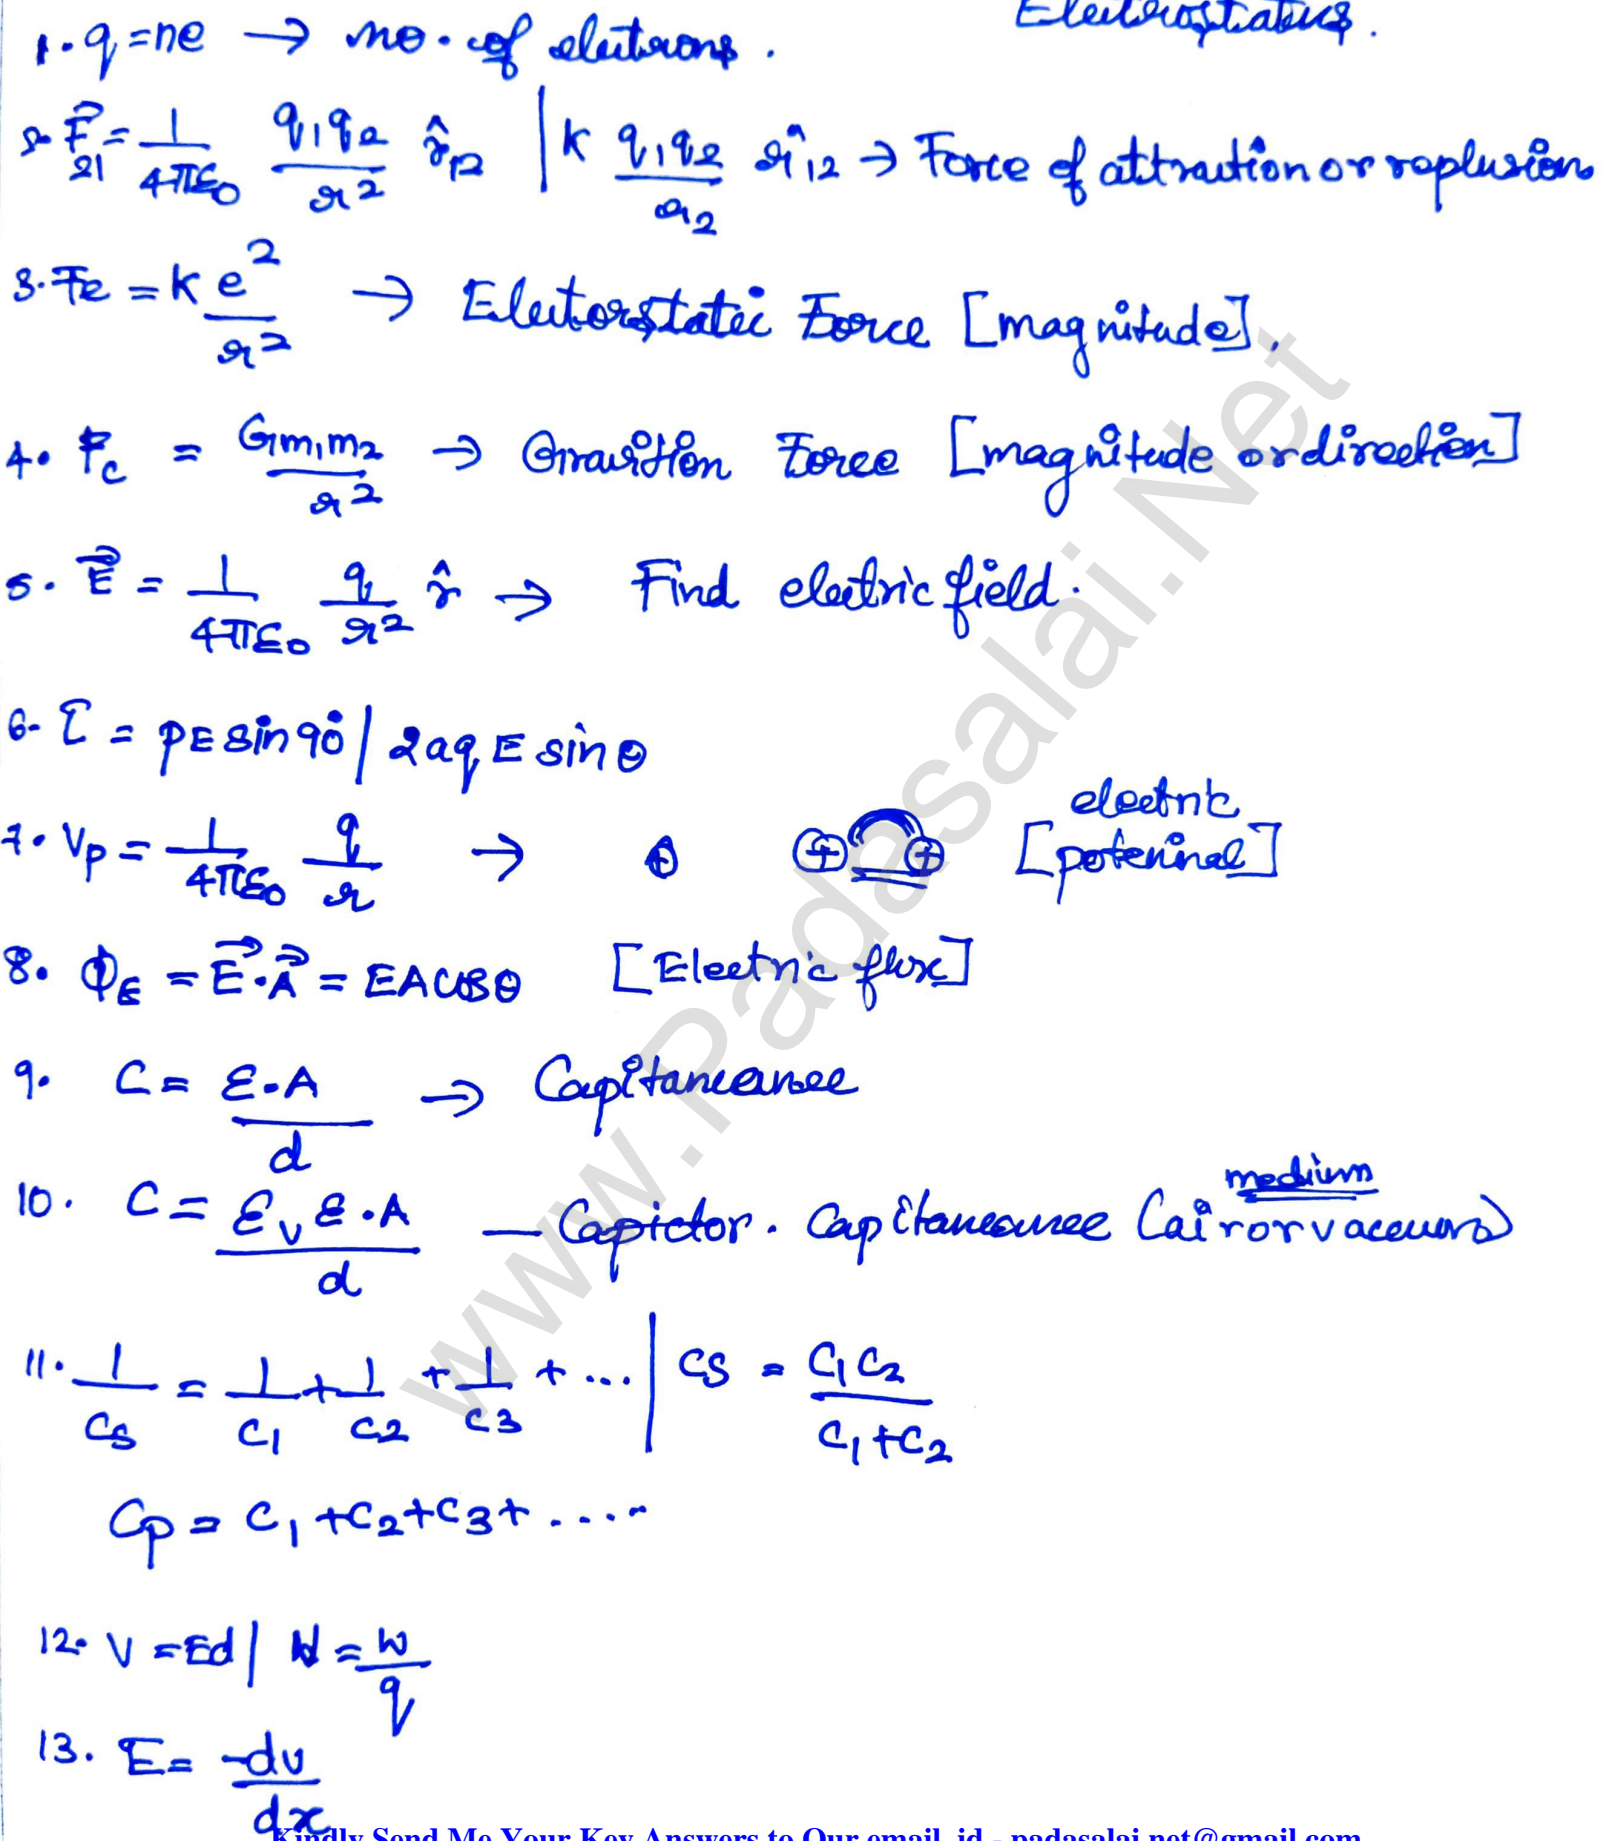 Electrostatics.
1. q = ne → no. of electrons.
2. F⃗₂₁ = 1/4πε₀ q₁q₂/r² r̂₁₂ | K q₁q₂/r₂ r̂₁₂ → Force of attraction or replusion
3. Fe = K e²/r² → Eleitorstatic Force [magnitude].
4. F_c = Gm₁m₂/r² → Gravition Force [magnitude or direction]
5. E⃗ = 1/4πε₀ q/r² r̂ → Find electric field.
6. τ = PE sin 90° | 2aqE sin θ
7. V_P = 1/4πε₀ q/r → [electric poteninal]
8. Φ_E = E⃗·A⃗ = EA cos θ [Electric flux]
9. C = ε.A/d → Capitanceance
10. C = ε_v ε.A/d — Capictor. Capitanceance (air or vaceuum) medium
11. 1/Cs = 1/C1 + 1/C2 + 1/C3 + ... | CS = C1C2/C1+C2
Cp = C1 + C2 + C3 + ....
12. V = Ed | W = W/q
13. E = -dv/dx
Kindly Send Me Your Key Answers to Our email id - padasalai.net@gmail.com
www.Padasalai.Net